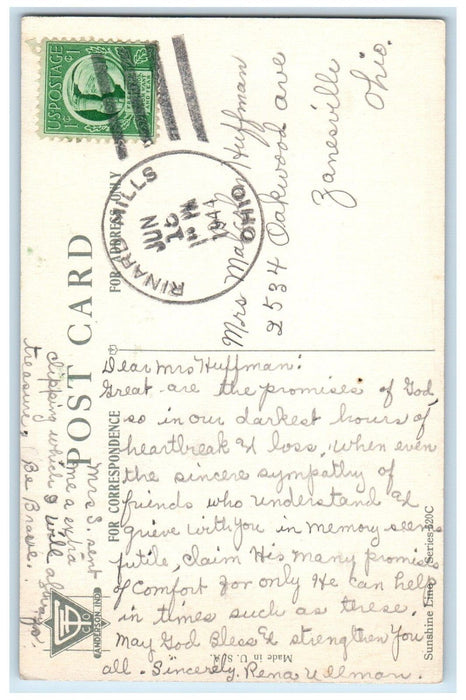 US POSTAGE 1¢
RINARD MILLS
JUN
16
1 PM
1944
OHIO
POST CARD
FOR ADDRESS ONLY
Mrs Huffman
2534 Oakwood ave
Zanesville
Ohio.
FOR CORRESPONDENCE
Dear Mrs Huffman:
Great are the promises of God,
so in our darkest hours of
heartbreak & loss, when even
the sincere sympathy of
friends who understand &
grieve with you in memory seems
futile, claim His many promises
of Comfort for only He can help
in times such as these.
May God Bless & strengthen You
all. Sincerely, Rena Ullman.
Mrs S. sent
me a extra
clipping which I will always
treasure. Be Brave.
ANDERSON, IND.
Made in U.S.A.
Sunshine Line Series 620C